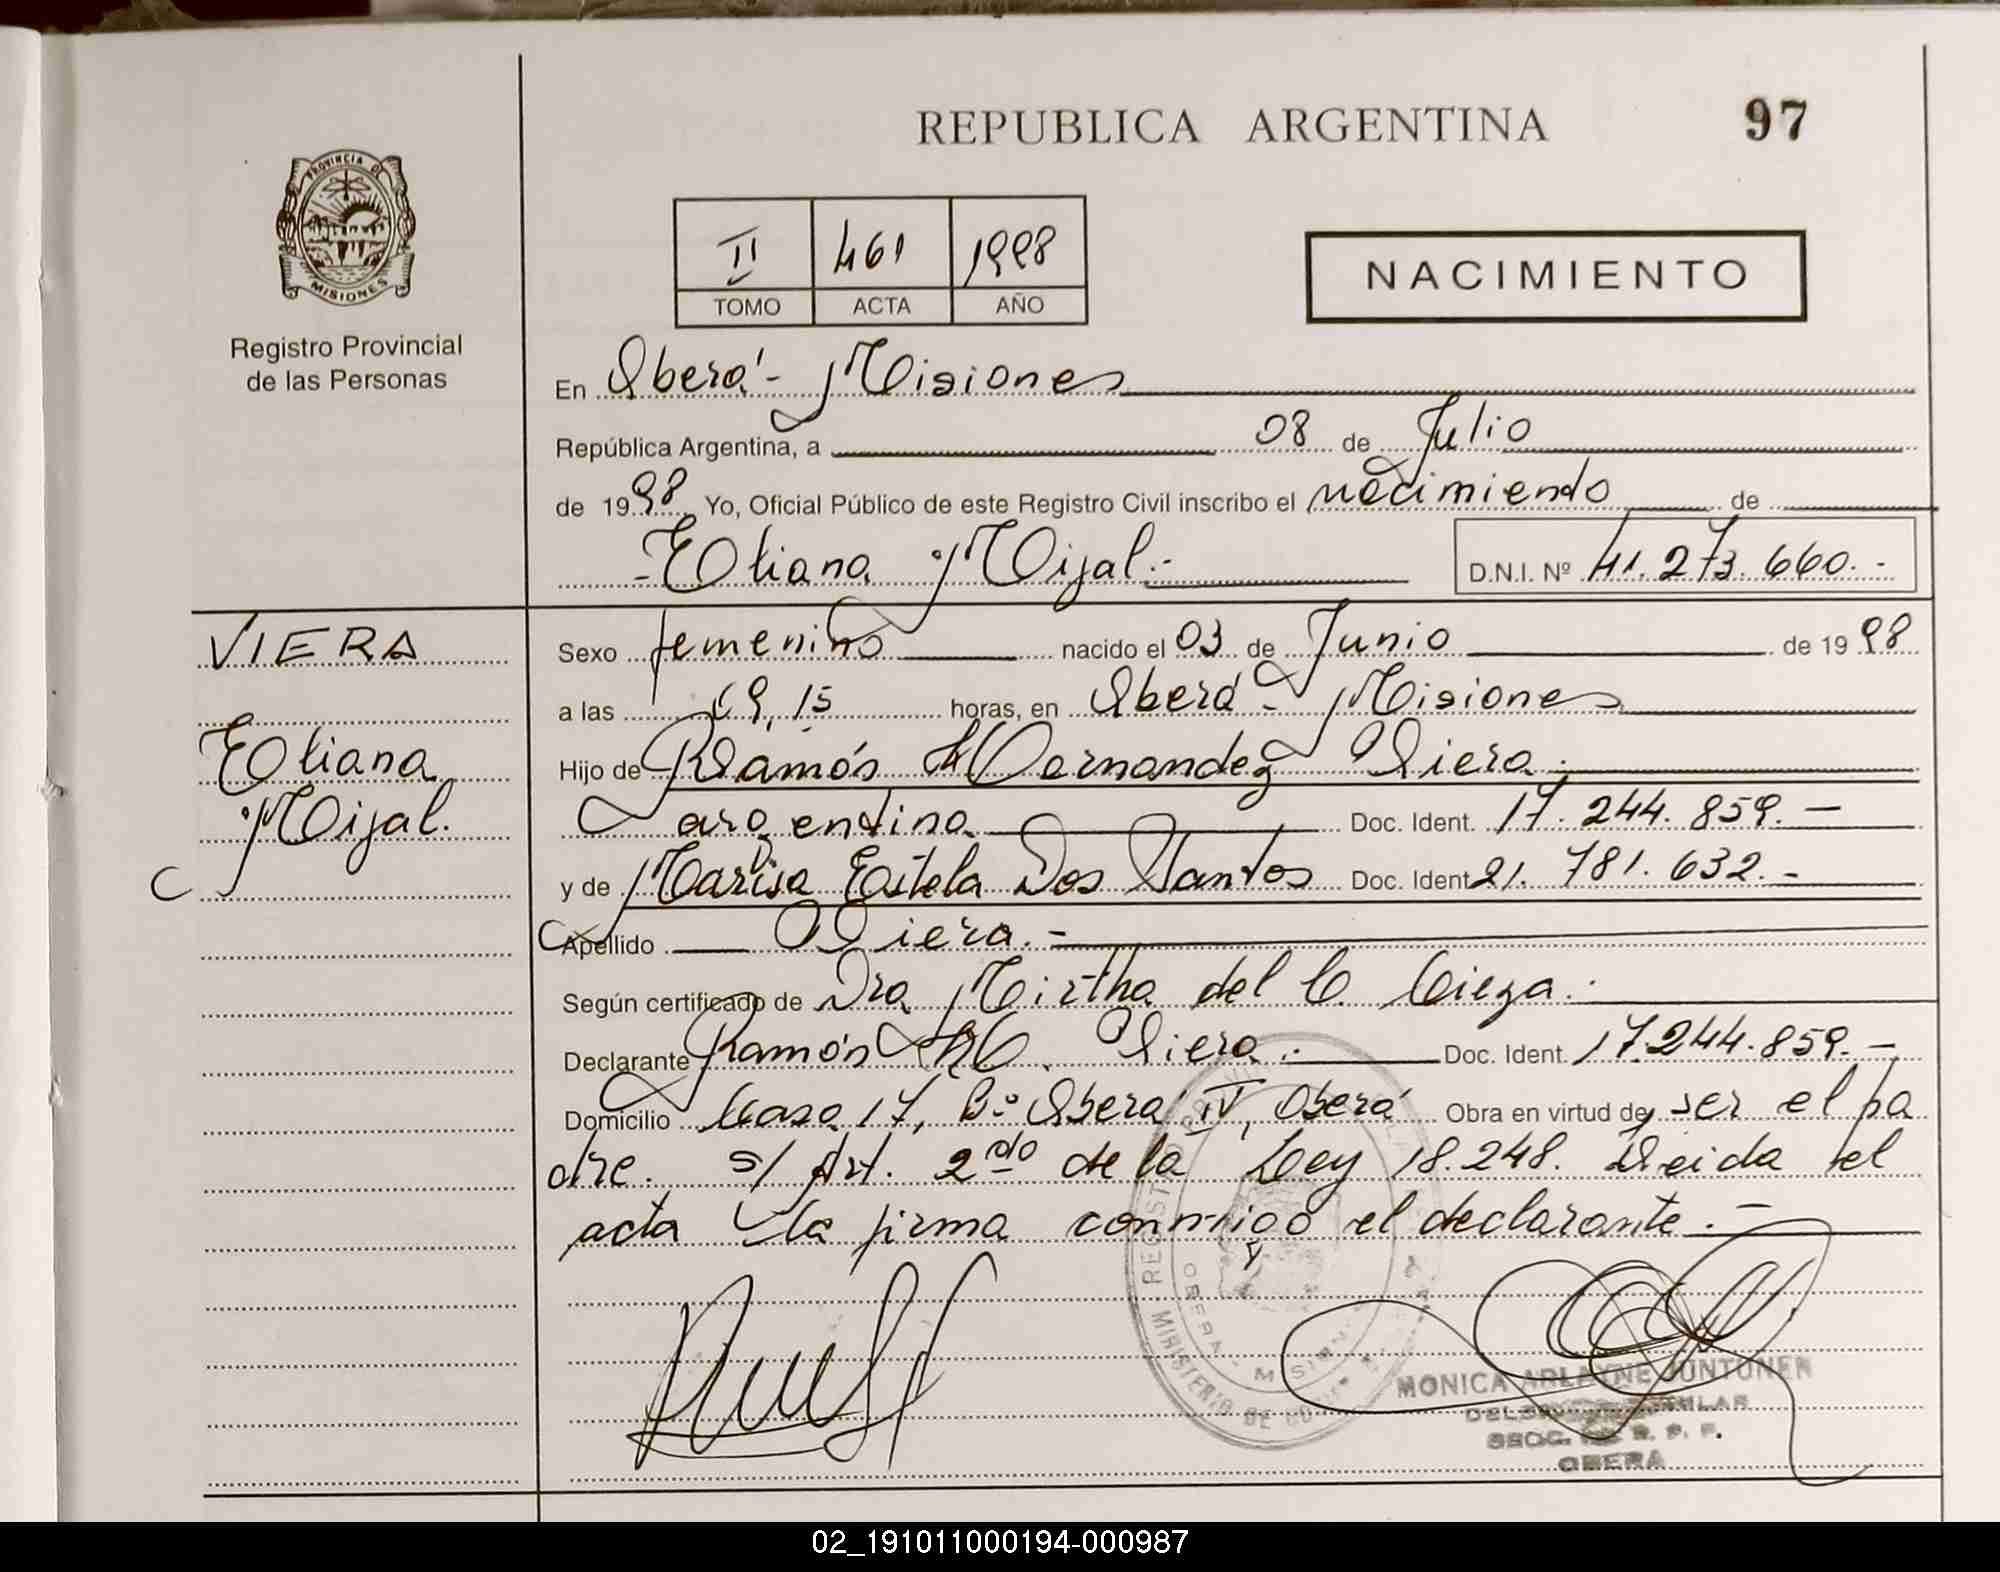 REPUBLICA ARGENTINA
97
PROVINCIA DE
MISIONES
Registro Provincial
de las Personas
II 461 1998
TOMO ACTA AÑO
NACIMIENTO
En Oberá - Misiones
República Argentina, a 08 de Julio
de 1998 Yo, Oficial Público de este Registro Civil inscribo el nacimiento de
- Eliana Mijal.-
D.N.I. Nº 41.273.660.-
VIERA
Eliana
Mijal.
Sexo femenino nacido el 03 de Junio de 1998
a las 19,15 horas, en Oberá - Misiones
Hijo de Ramón Hernandez Viera.
argentino Doc. Ident. 17.244.859.-
y de Marisa Estela Dos Santos Doc. Ident. 21.781.632.-
Apellido Viera.-
Según certificado de Dra Mirtha del C. Cieza.
Declarante Ramón H. Viera.- Doc. Ident. 17.244.859.-
Domicilio Casa 17, Bº Oberá IV, Oberá Obra en virtud de ser el pa
dre. s/ Art. 2do de la Ley 18.248. Leida el
acta la firma conmigo el declarante.-
REGISTRO
MINISTERIO DE
MONICA ARLAYNE JUNTUNEN
OBERA
02_191011000194-000987